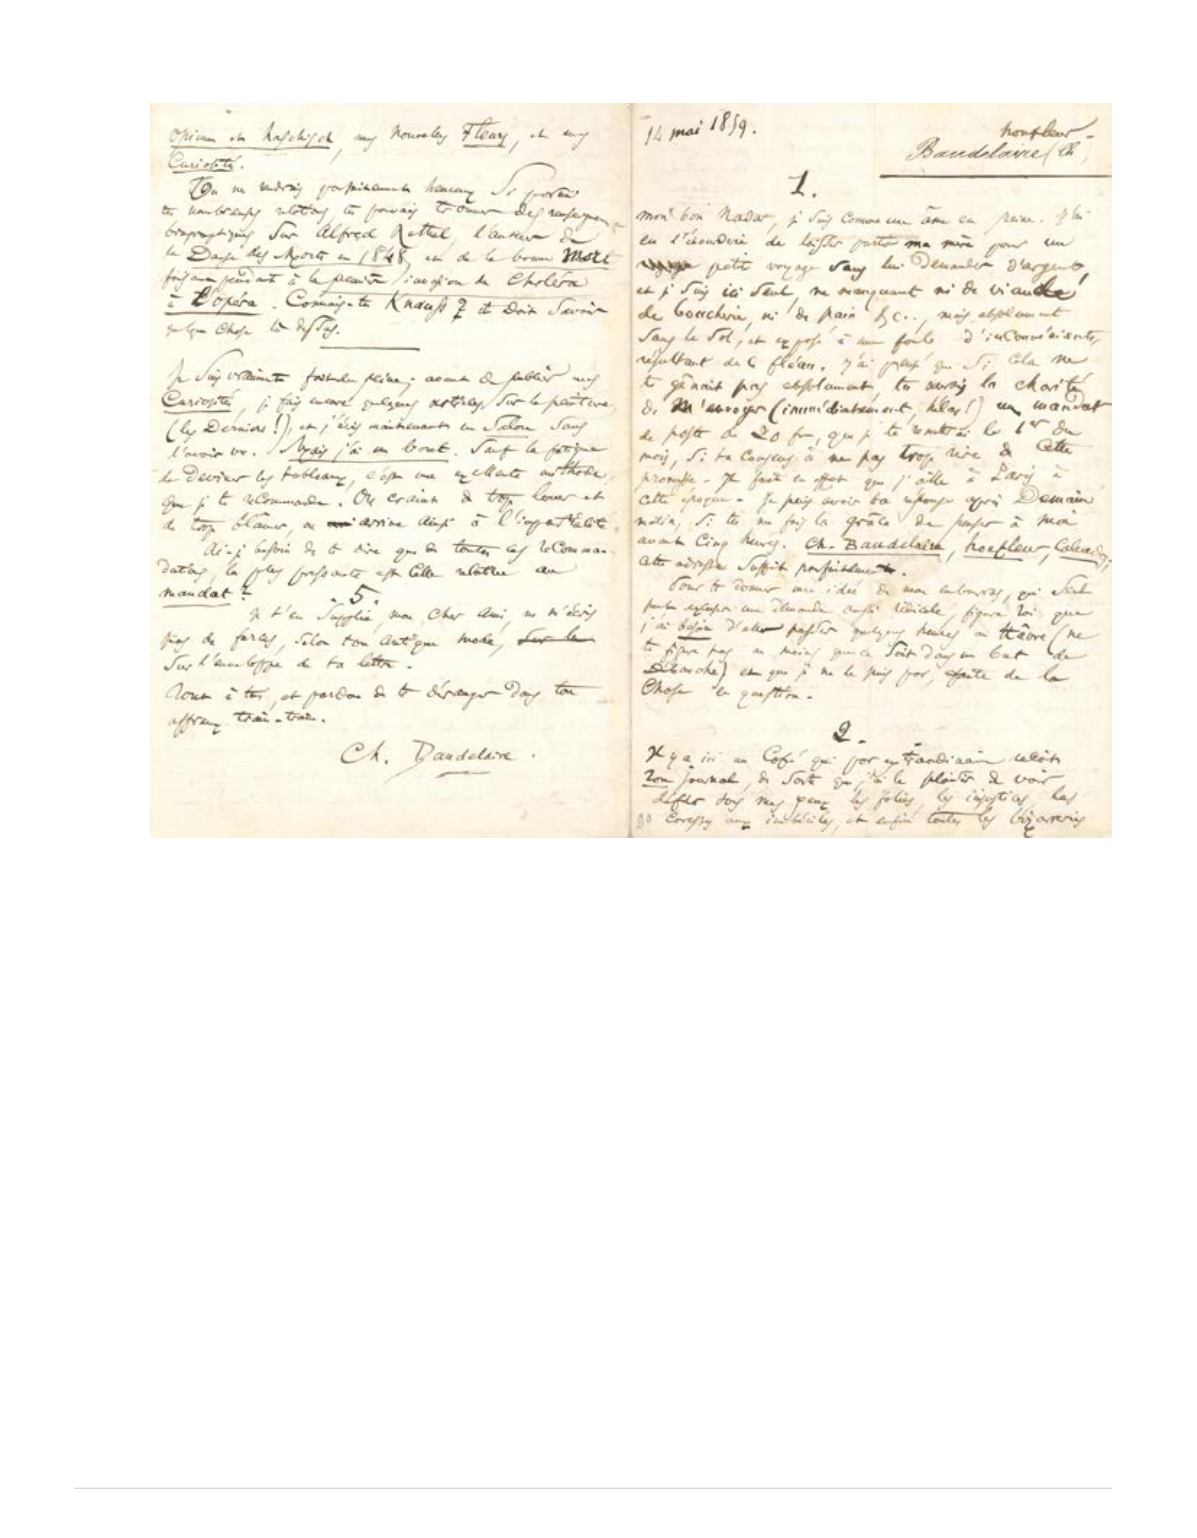 Opium et Haschisch, mes Nouvelles Fleurs, et mes
Curiosités.
Tu me rendrais parfaitement heureux si parmi
tes nombreuses relations, tu pouvais trouver des renseignemen
biographiques sur Alfred Rethel, l'auteur de
la Danse des Morts en 1848, et de la bonne Mort
faisant pendant à la première invasion du Choléra
à l'opéra. Connais-tu Knauss ? il doit savoir
quelque chose là-dessus.
Je suis vraiment fort en peine ; avant de publier mes
Curiosités, je fais encore quelques articles sur la peinture,
(les Derniers !), et j'écris maintenant un Salon sans
l'avoir vu. Mais j'ai un livret. Sauf la fatigue
de deviner les tableaux, c'est une excellente méthode,
que je te recommande. On craint de trop louer et
de trop blâmer, on arrive ainsi à l'impartialité.
Ai-je besoin de te dire que de toutes ces recomman-
dations, la plus pressante est celle relative au
mandat ?
5.
Je t'en supplie, mon cher ami, ne m'écris
pas de farces, selon ton antique mode, sur le
sur l'enveloppe de ta lettre.
Tout à toi, et pardon de te déranger dans ton
affreux train-train.
Ch. Baudelaire.
14 mai 1859.
honfleur -
Baudelaire (Ch)
1.
mon bon Nadar, je suis comme une âme en peine. J'ai
eu l'étourderie de laisser partir ma mère pour un
petit voyage sans lui demander d'argent,
et je suis ici seul, ne manquant ni de viande
de boucherie, ni de pain &c.., mais absolument
sans le sol, et exposé à une foule d'inconvénients,
résultant de ce fléau. J'ai pensé que si cela ne
te gênait pas absolument tu aurais la charité
de m'envoyer (immédiatement, hélas !) un mandat
de poste de 20 fr, que je te remettrai le 1er du
mois, si tu consens à ne pas trop rire de cette
promesse. Il faut en effet que j'aille à Paris à
cette époque. Je puis avoir ta réponse après Demain
matin, si tu me fais la grâce de penser à moi
avant Cinq heures. Ch. Baudelaire, honfleur, Calvados;
cette adresse suffit parfaitement.
Pour te donner une idée de mon embarras, qui seul
peut excuser une demande aussi ridicule, figure toi que
j'ai besoin d'aller passer quelques heures au hâvre (ne
te figure pas au moins que ce soit dans un but de
Débauche) et que je ne le puis pas, faute de la
chose en question.
2.
Il y a ici un Café qui par extraordinaire reçoit
ton journal, de sorte que j'ai le plaisir de voir
défiler sous mes yeux les folies, les injustices, les
caresses aux imbéciles, et enfin toutes les bizarreries